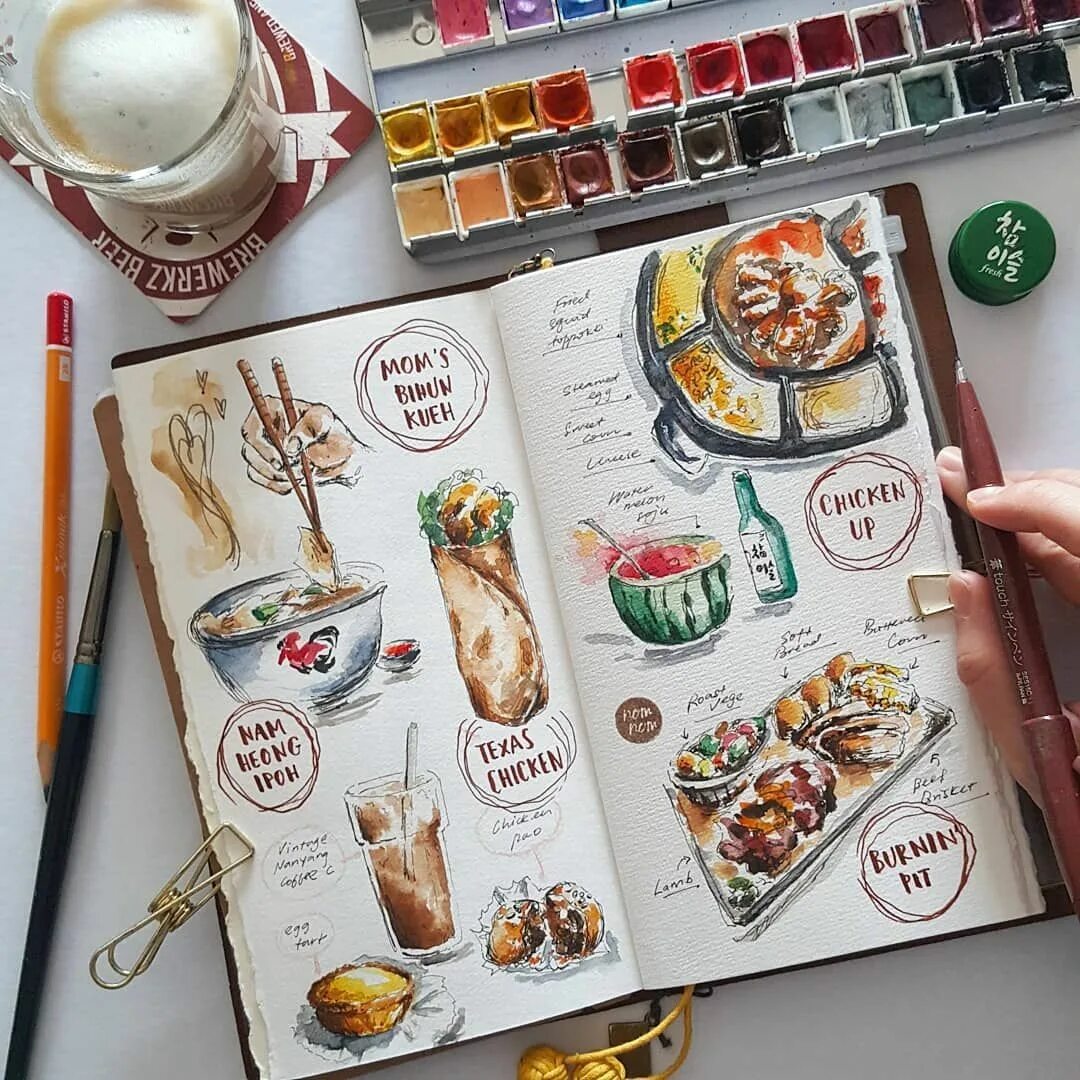 BREWERKZ BEER
BREWED
STABILO
참
이슬
fresh
MOM'S
BIHUN
KUEH
NAM
HEONG
IPOH
TEXAS
CHICKEN
Vintage
Nanyang
coffee C
egg
tart
Chicken
pao
Fried
squid
toppokki
Steamed
egg
Sweet
corn
Cheese
Water
melon
soju
참
이슬
CHICKEN
UP
Soft
Bread
Buttered
Corn
Roast
vege
nom
nom
Beef
Brisket
Lamb
BURNIN'
PIT
touch サインペン